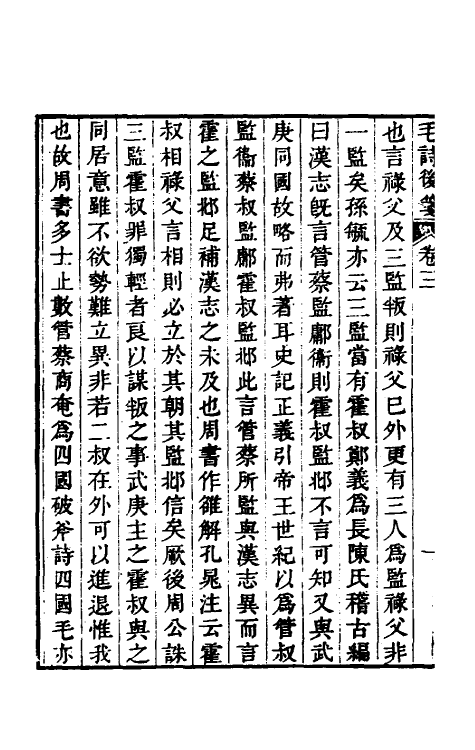 毛詩後箋 卷三
也言祿父及三監叛則祿父已外更有三人爲監祿父非
一監矣孫毓亦云三監當有霍叔鄭義爲長陳氏稽古編
曰漢志旣言管蔡監鄘衞則霍叔監邶不言可知又與武
庚同國故略而弗著耳史記正義引帝王世紀以爲管叔
監衞蔡叔監鄘霍叔監邶此言管蔡所監與漢志異而言
霍之監邶足補漢志之未及也周書作雒解孔晁注云霍
叔相祿父言相則必立於其朝其監邶信矣厥後周公誅
三監霍叔罪獨輕者良以謀叛之事武庚主之霍叔與之
同居意雖不欲勢難立異非若二叔在外可以進退惟我
也故周書多士止數管蔡商奄爲四國破斧詩四國毛亦
一